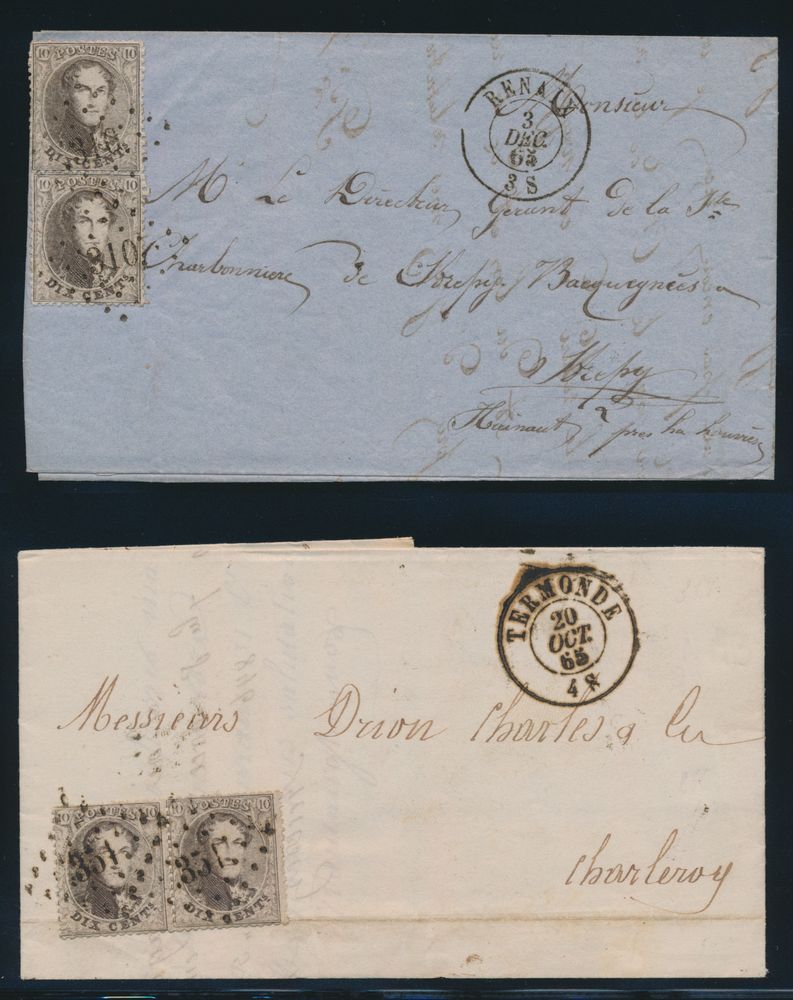 10 POSTES 10
DIX CENT.
10 POSTES 10
310
DIX CENT.
RENAIX
3
DEC.
65
3 S
Monsieur
Mr Le Directeur Gerant de la Ste
Charbonniere de Strepy Bracquegnies a
Strepy
Hainaut pres La Louviere
TERMONDE
20
OCT.
65
4 S
Messieurs Drion Charles & Cie
Charleroy
10 POSTES 10
351
DIX CENT.
10 POSTES 10
351
DIX CENT.